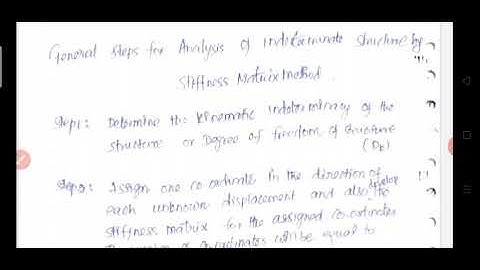 General Steps for Analysis of indeterminate structure by
Stiffness Matrix Method.
Step1: Determine the kinematic indeterminacy of the
structure or Degree of freedom of structure
(Dk)
Step2: Assign one co ordinate in the direction of
each unknown displacement and also develop the
stiffness matrix for the assigned co-ordinates
co-ordinates will be equal to